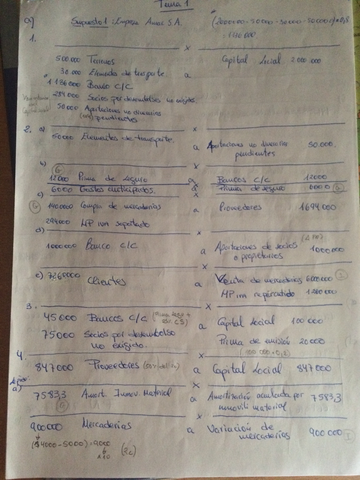 Tema 1
a) Supuesto 1: Empresa Amas S.A.
1.
500000 Terrenos
a Capital Social 2000000
Elementos de transporte
Banco C/C
Socios por desembolsos no exigidos
50000 Aportaciones no dinerarias pendientes
2. a)
50000 Elementos de transporte
a Aportaciones no dinerarias pendientes 50.000
b)
12000 Prima de seguro
a Bancos C/C 12000
6000 Gastos anticipados
a Prima de seguro 6000
c)
1400000 Compra de mercaderías
a Proveedores 1694000
294000 HP IVA soportado
d)
1000000 Banco C/C
a Aportaciones de socios o propietarios 1000000
e) 7260000 Clientes
a Venta de mercaderías 6000000
HP IVA repercutido 1260000
3.
45000 Bancos C/C
a Capital Social 100000
75000 Socios por desembolso no exigido
Prima de emisión 20000
4.
847000 Proveedores
a Capital Social 847000
a)
75833 Amort. Inmov. Material
a Amortización acumulada por inmovili material 75833
900000 Mercaderías
a Variación de mercaderías 900000
(14000-5000)=9000